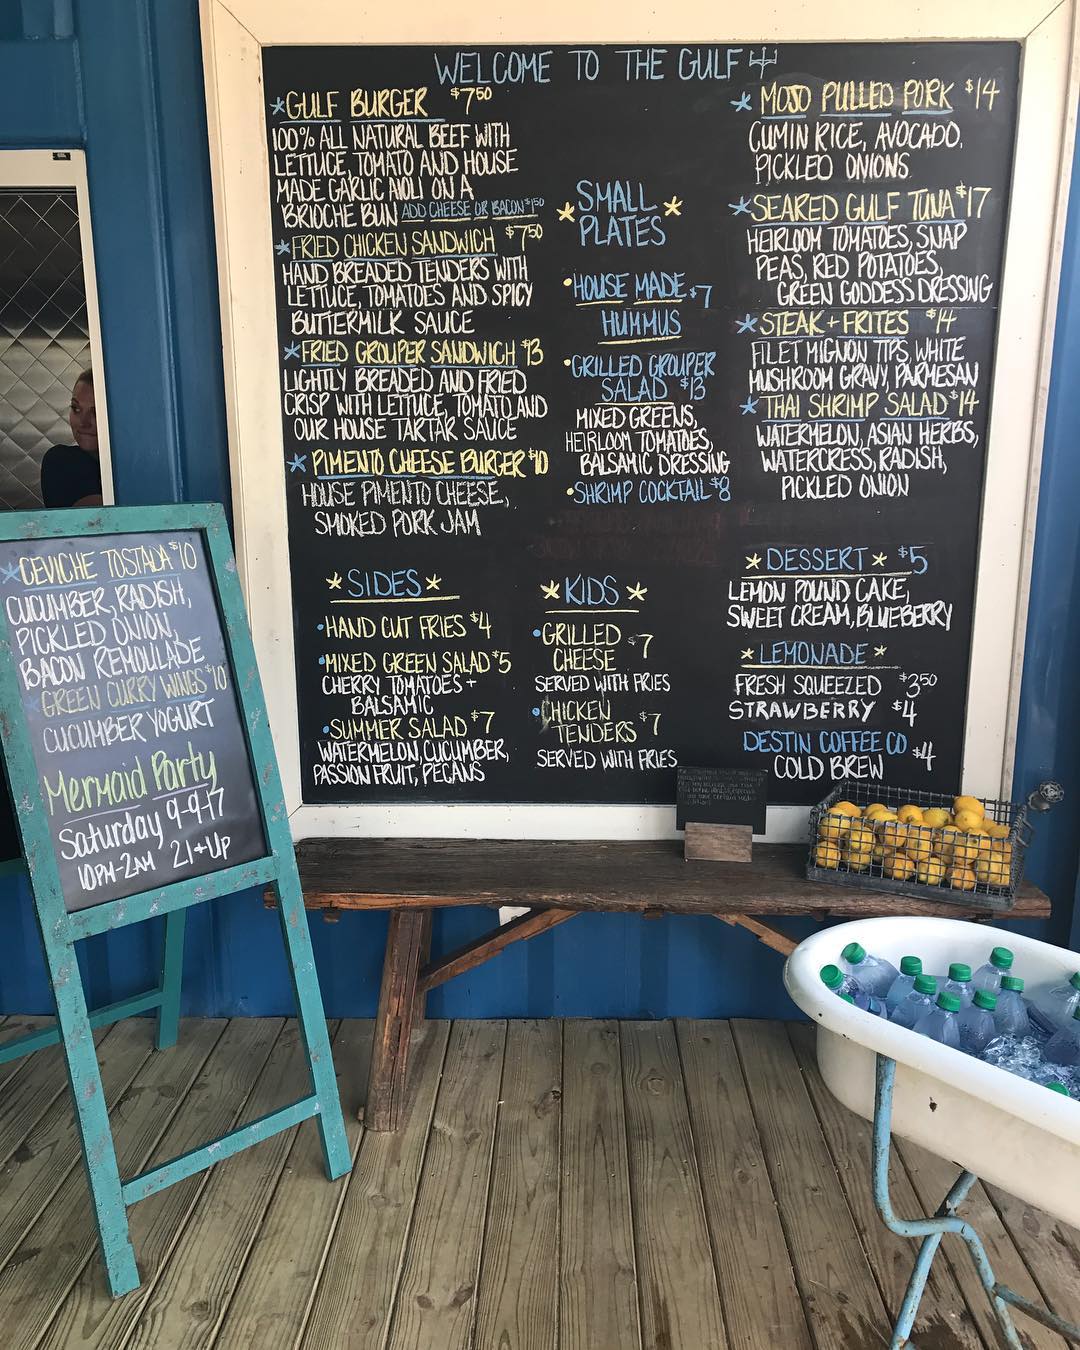 WELCOME TO THE GULF
GULF BURGER $7.50
100% ALL NATURAL BEEF WITH
LETTUCE, TOMATO AND HOUSE
MADE GARLIC AIOLI ON A
BRIOCHE BUN ADD CHEESE OR BACON $1.50
FRIED CHICKEN SANDWICH $7.50
HAND BREADED TENDERS WITH
LETTUCE, TOMATOES AND SPICY
BUTTERMILK SAUCE
FRIED GROUPER SANDWICH $13
LIGHTLY BREADED AND FRIED
CRISP WITH LETTUCE, TOMATO AND
OUR HOUSE TARTAR SAUCE
PIMENTO CHEESE BURGER $10
HOUSE PIMENTO CHEESE,
SMOKED PORK JAM
SMALL
PLATES
HOUSE MADE $7
HUMMUS
GRILLED GROUPER
SALAD $13
MIXED GREENS,
HEIRLOOM TOMATOES,
BALSAMIC DRESSING
SHRIMP COCKTAIL $8
MOJO PULLED PORK $14
CUMIN RICE, AVOCADO,
PICKLED ONIONS
SEARED GULF TUNA $17
HEIRLOOM TOMATOES, SNAP
PEAS, RED POTATOES,
GREEN GODDESS DRESSING
STEAK + FRITES $14
FILET MIGNON TIPS, WHITE
MUSHROOM GRAVY, PARMESAN
THAI SHRIMP SALAD $14
WATERMELON, ASIAN HERBS,
WATERCRESS, RADISH,
PICKLED ONION
SIDES
HAND CUT FRIES $4
MIXED GREEN SALAD $5
CHERRY TOMATOES +
BALSAMIC
SUMMER SALAD $7
WATERMELON, CUCUMBER,
PASSION FRUIT, PECANS
KIDS
GRILLED
CHEESE $7
SERVED WITH FRIES
CHICKEN
TENDERS $7
SERVED WITH FRIES
DESSERT $5
LEMON POUND CAKE,
SWEET CREAM, BLUEBERRY
LEMONADE
FRESH SQUEEZED $3.50
STRAWBERRY $4
DESTIN COFFEE CO $4
COLD BREW
CEVICHE TOSTADA $10
CUCUMBER, RADISH,
PICKLED ONION,
BACON REMOULADE
GREEN CURRY WINGS $10
CUCUMBER YOGURT
Mermaid Party
Saturday 9-9-17
10PM-2AM 21+UP